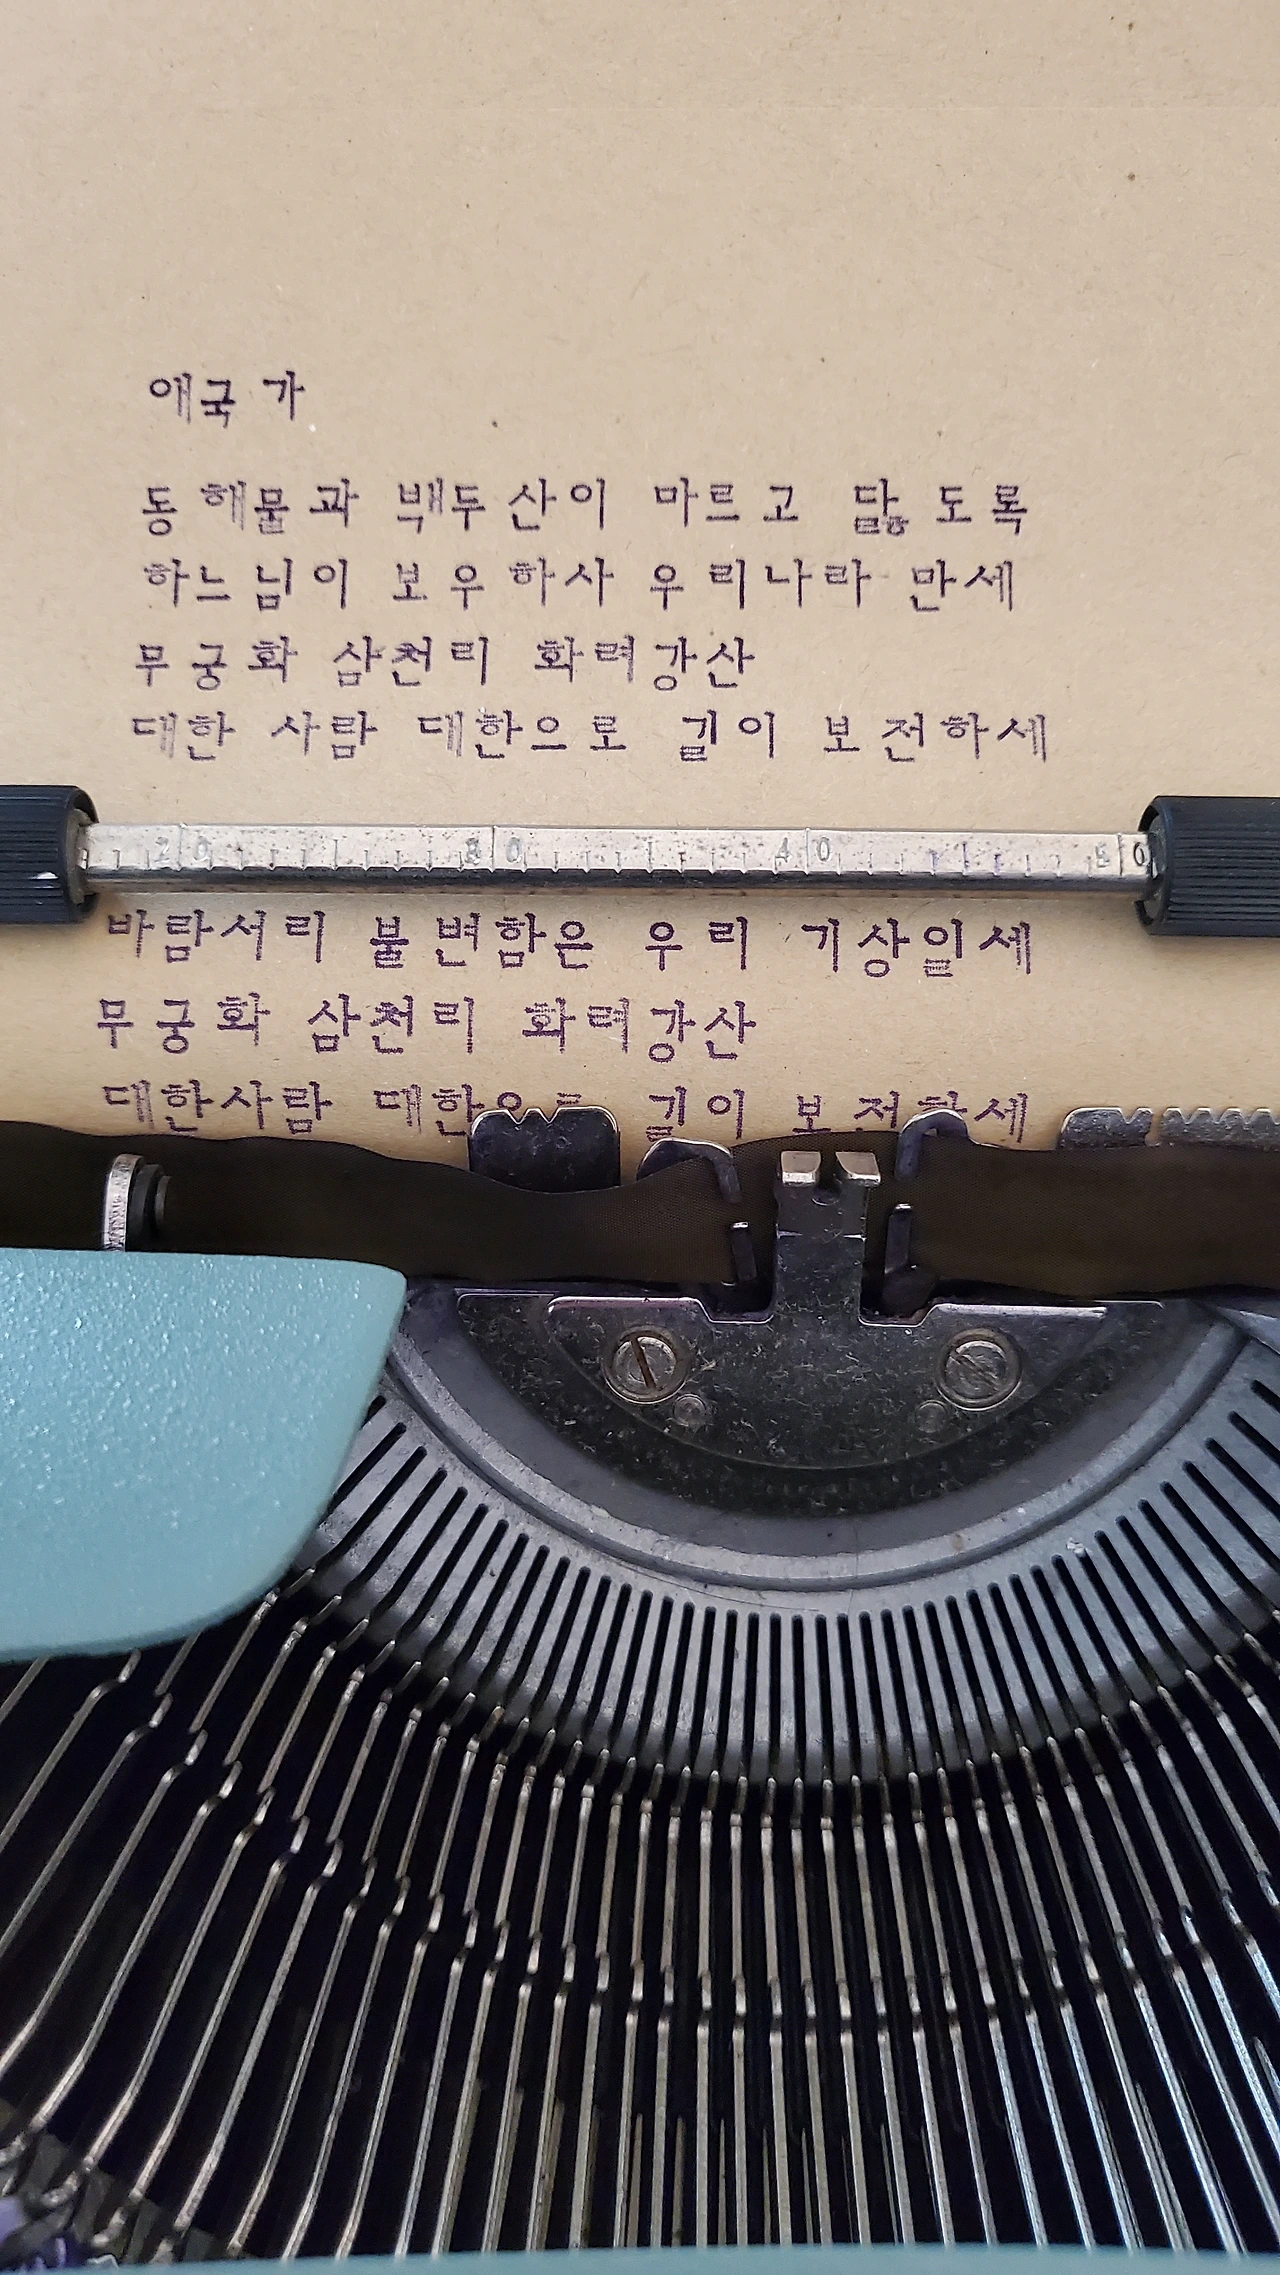 애국가
동해물과 백두산이 마르고 닳도록
하느님이 보우하사 우리나라 만세
무궁화 삼천리 화려강산
대한 사람 대한으로 길이 보전하세
20 30 40 50
바람서리 불변함은 우리 기상일세
무궁화 삼천리 화려강산
대한사람 대한으로 길이 보전하세